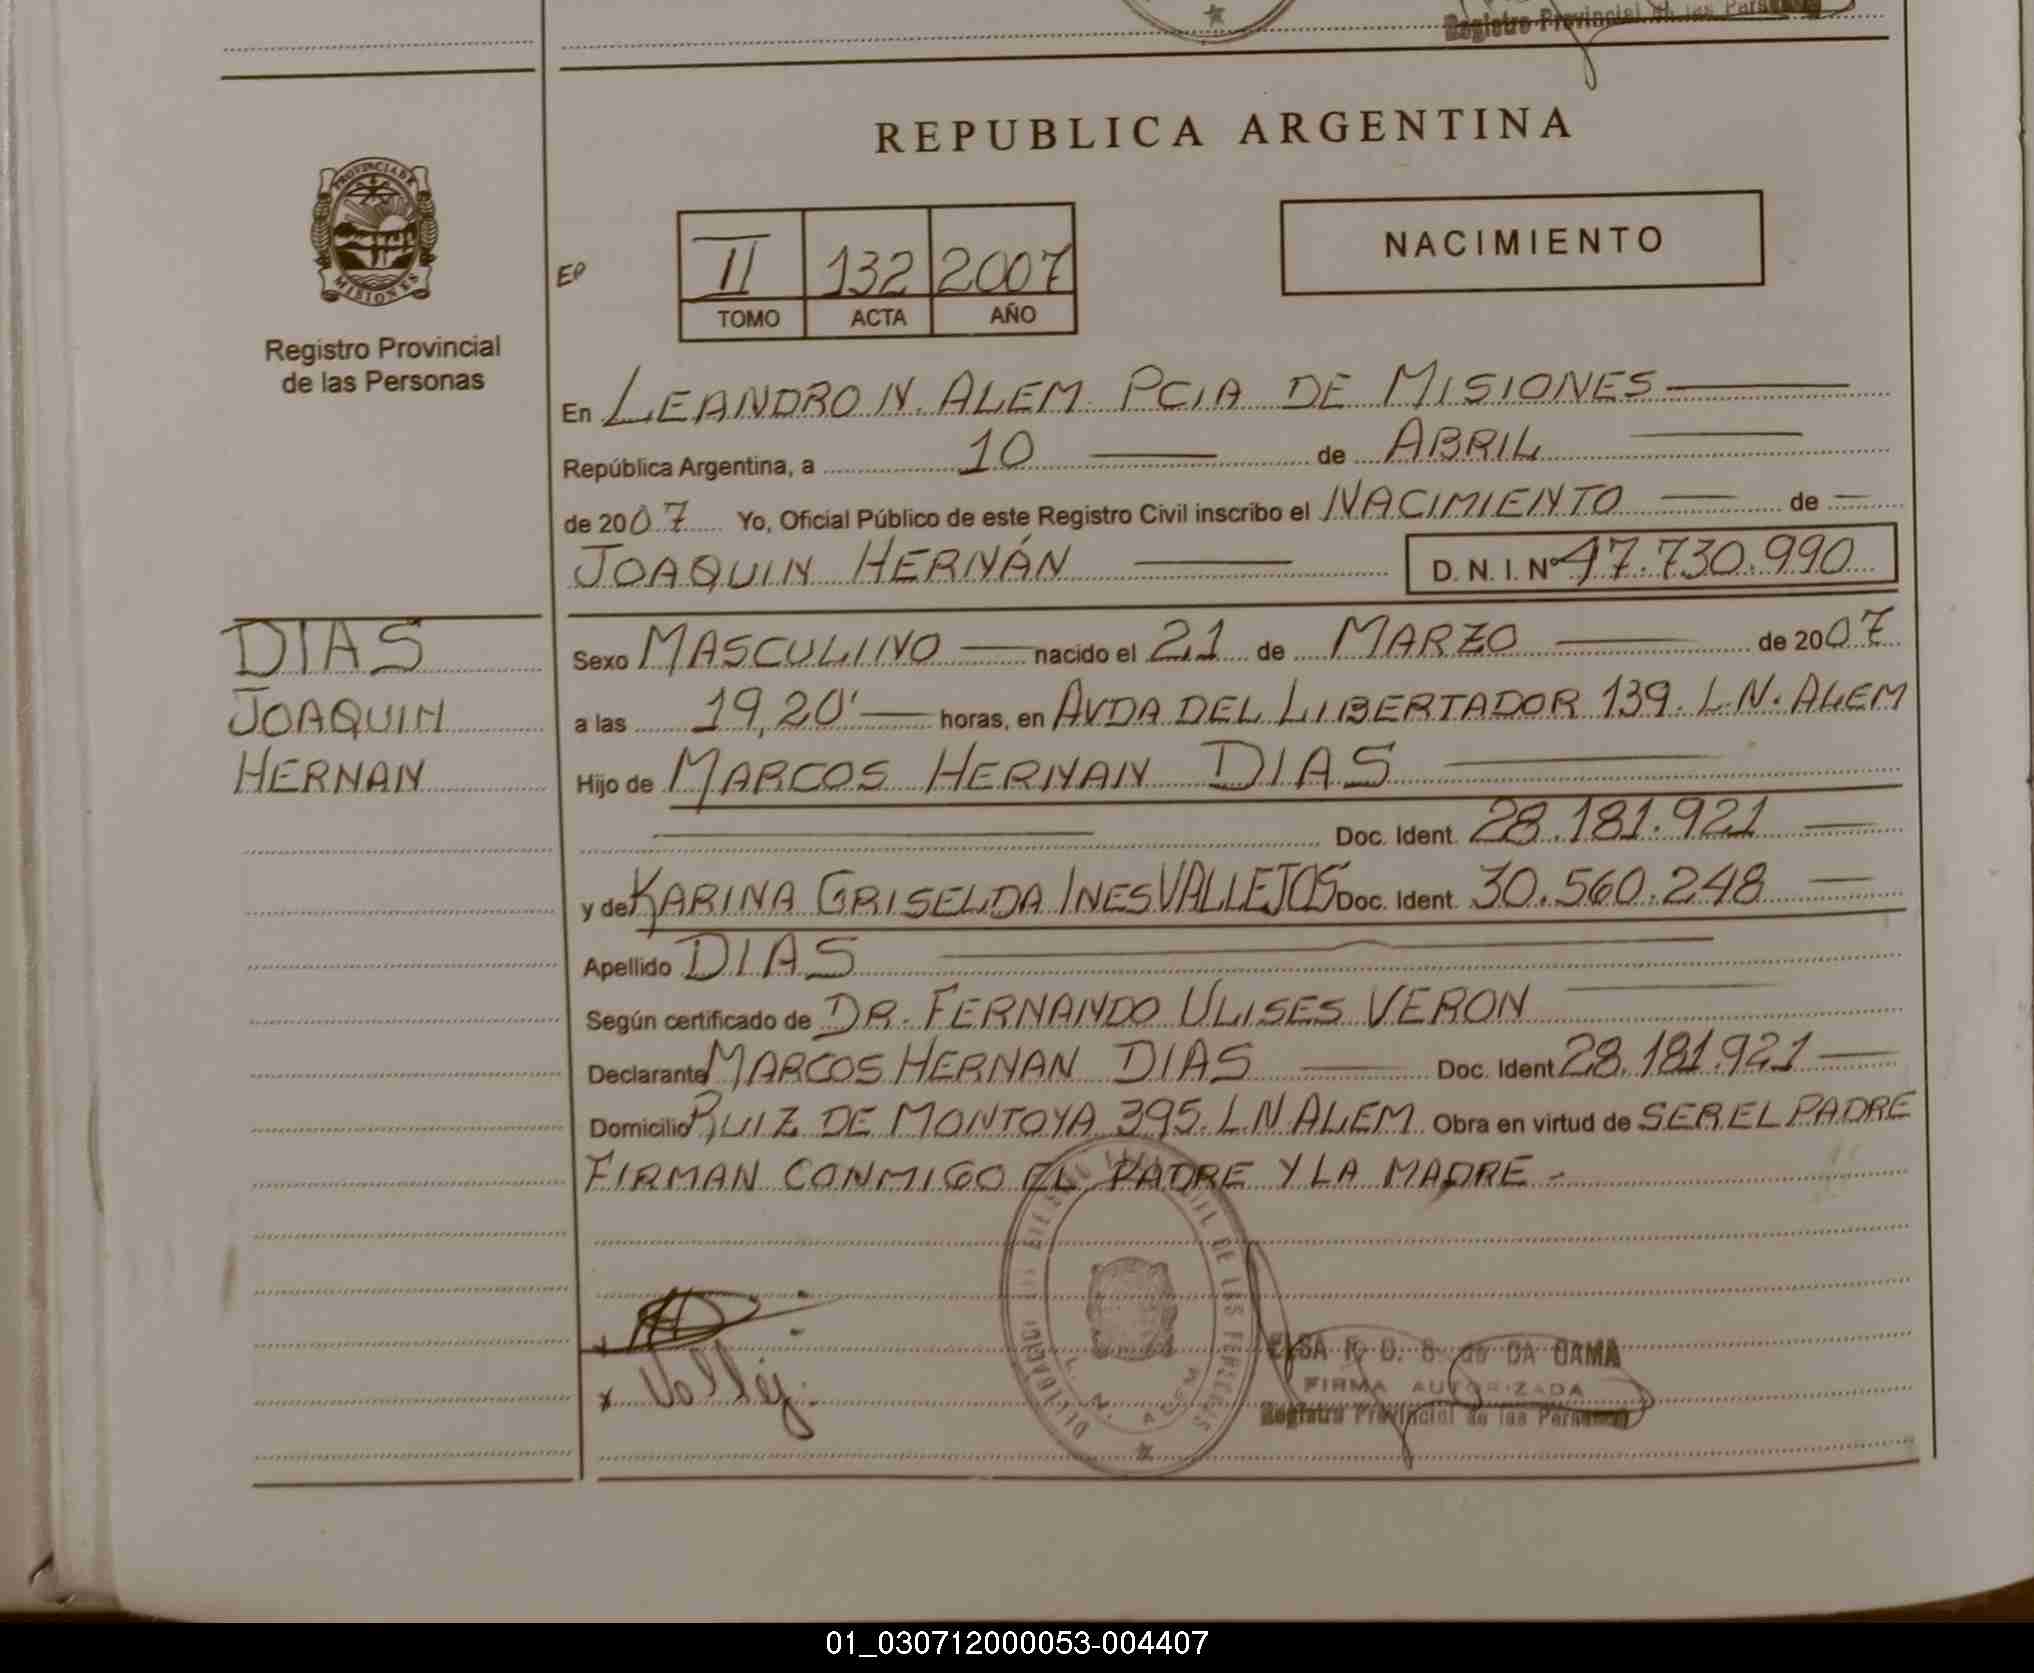 Registro Provincial de las Personas
REPUBLICA ARGENTINA
PROVINCIA DE
MISIONES
Registro Provincial
de las Personas
EP
II 132 2007
TOMO ACTA AÑO
NACIMIENTO
En LEANDRO N. ALEM PCIA DE MISIONES
República Argentina, a 10 de ABRIL
de 2007 Yo, Oficial Público de este Registro Civil inscribo el NACIMIENTO de
JOAQUIN HERNÁN D. N. I. Nº 47.730.990
DIAS
JOAQUIN
HERNAN
Sexo MASCULINO nacido el 21 de MARZO de 2007
a las 19,20' horas, en AVDA DEL LIBERTADOR 139. L.N. ALEM
Hijo de MARCOS HERNAN DIAS
Doc. Ident. 28.181.921
y de KARINA GRISELDA INES VALLEJOS Doc. Ident. 30.560.248
Apellido DIAS
Según certificado de DR. FERNANDO ULISES VERON
Declarante MARCOS HERNAN DIAS Doc. Ident 28.181.921
Domicilio RUIZ DE MONTOYA 395. L.N ALEM Obra en virtud de SER EL PADRE
FIRMAN CONMIGO EL PADRE Y LA MADRE -
DE LAS PERSONAS
L. N. ALEM
DA GAMA
FIRMA AUTORIZADA
Registro Provincial de las Personas
01_030712000053-004407